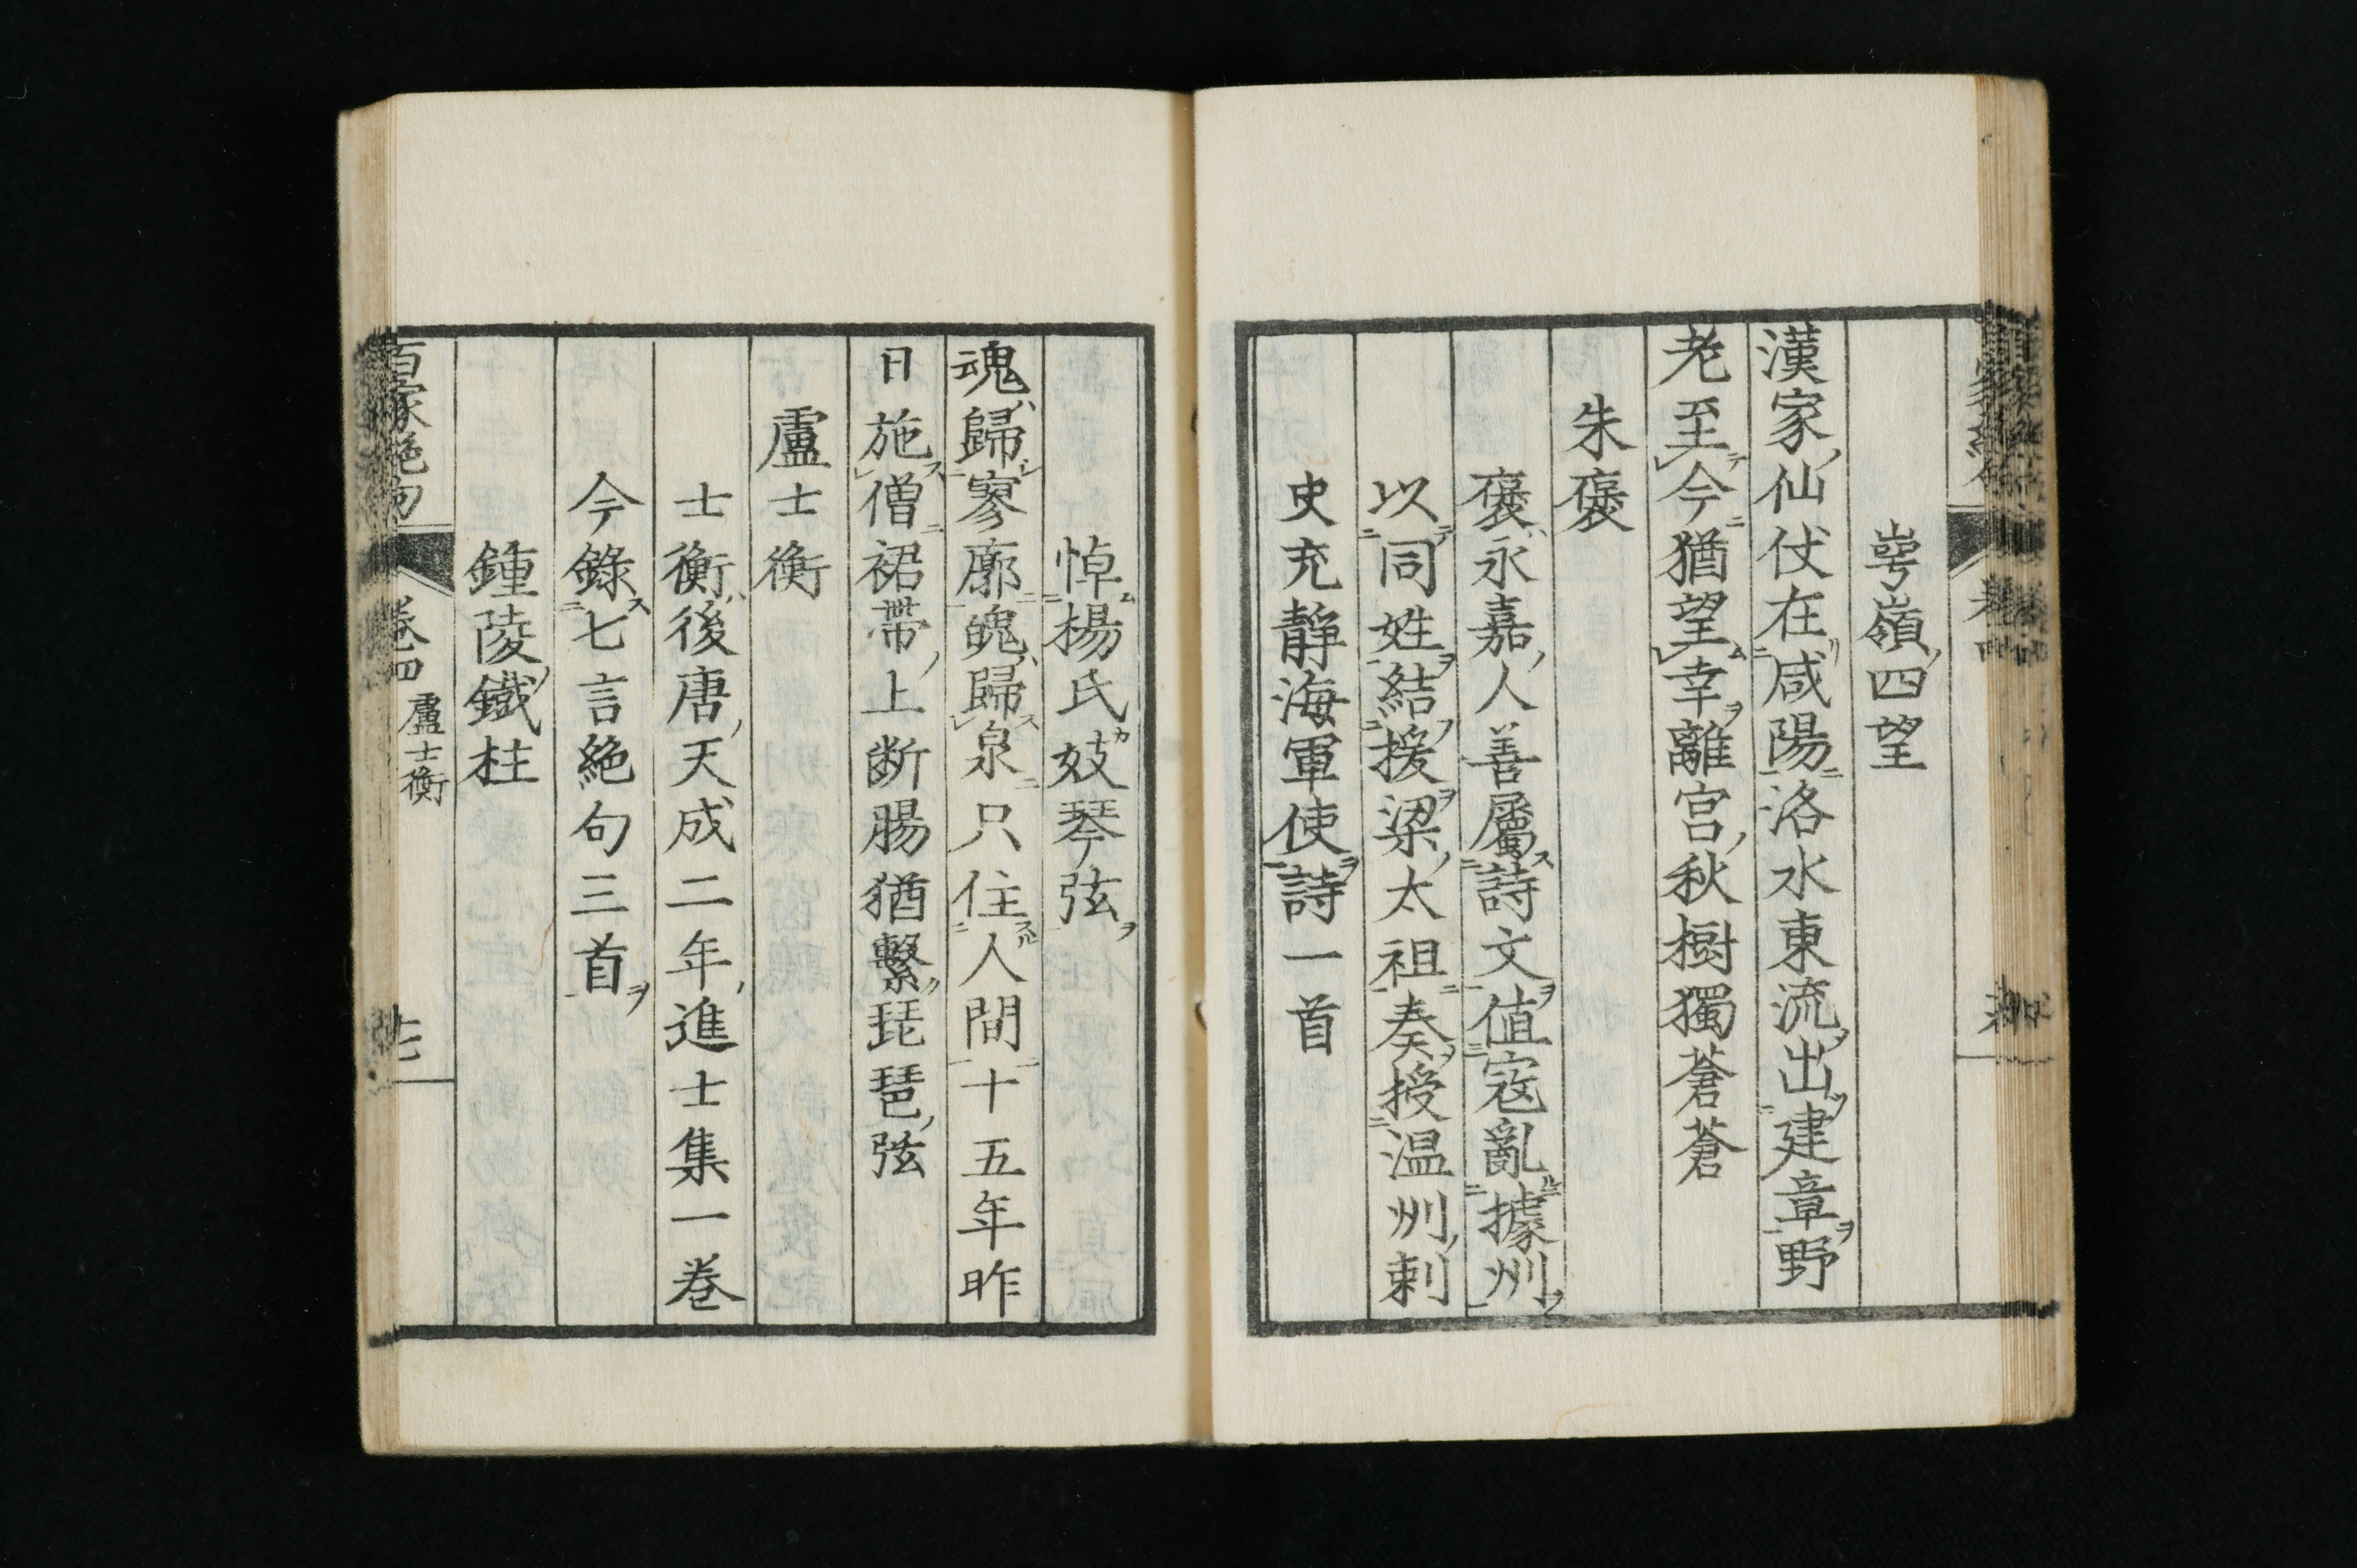 崿嶺四望
漢家仙仗在咸陽洛水東流出建章野
老至今猶望幸離宮秋樹獨蒼蒼
朱褒
褒永嘉人善屬詩文值寇亂據州
以同姓結援梁太祖奏授温州刺
史充静海軍使詩一首
悼楊氏妓琴弦
魂歸寥廓魄歸泉只住人間十五年昨
日施僧裙帶上断腸猶繫琵琶弦
盧士衡
士衡後唐天成二年進士集一卷
今錄七言絶句三首
鍾陵鐵柱
百家絶句
卷四
盧士衡